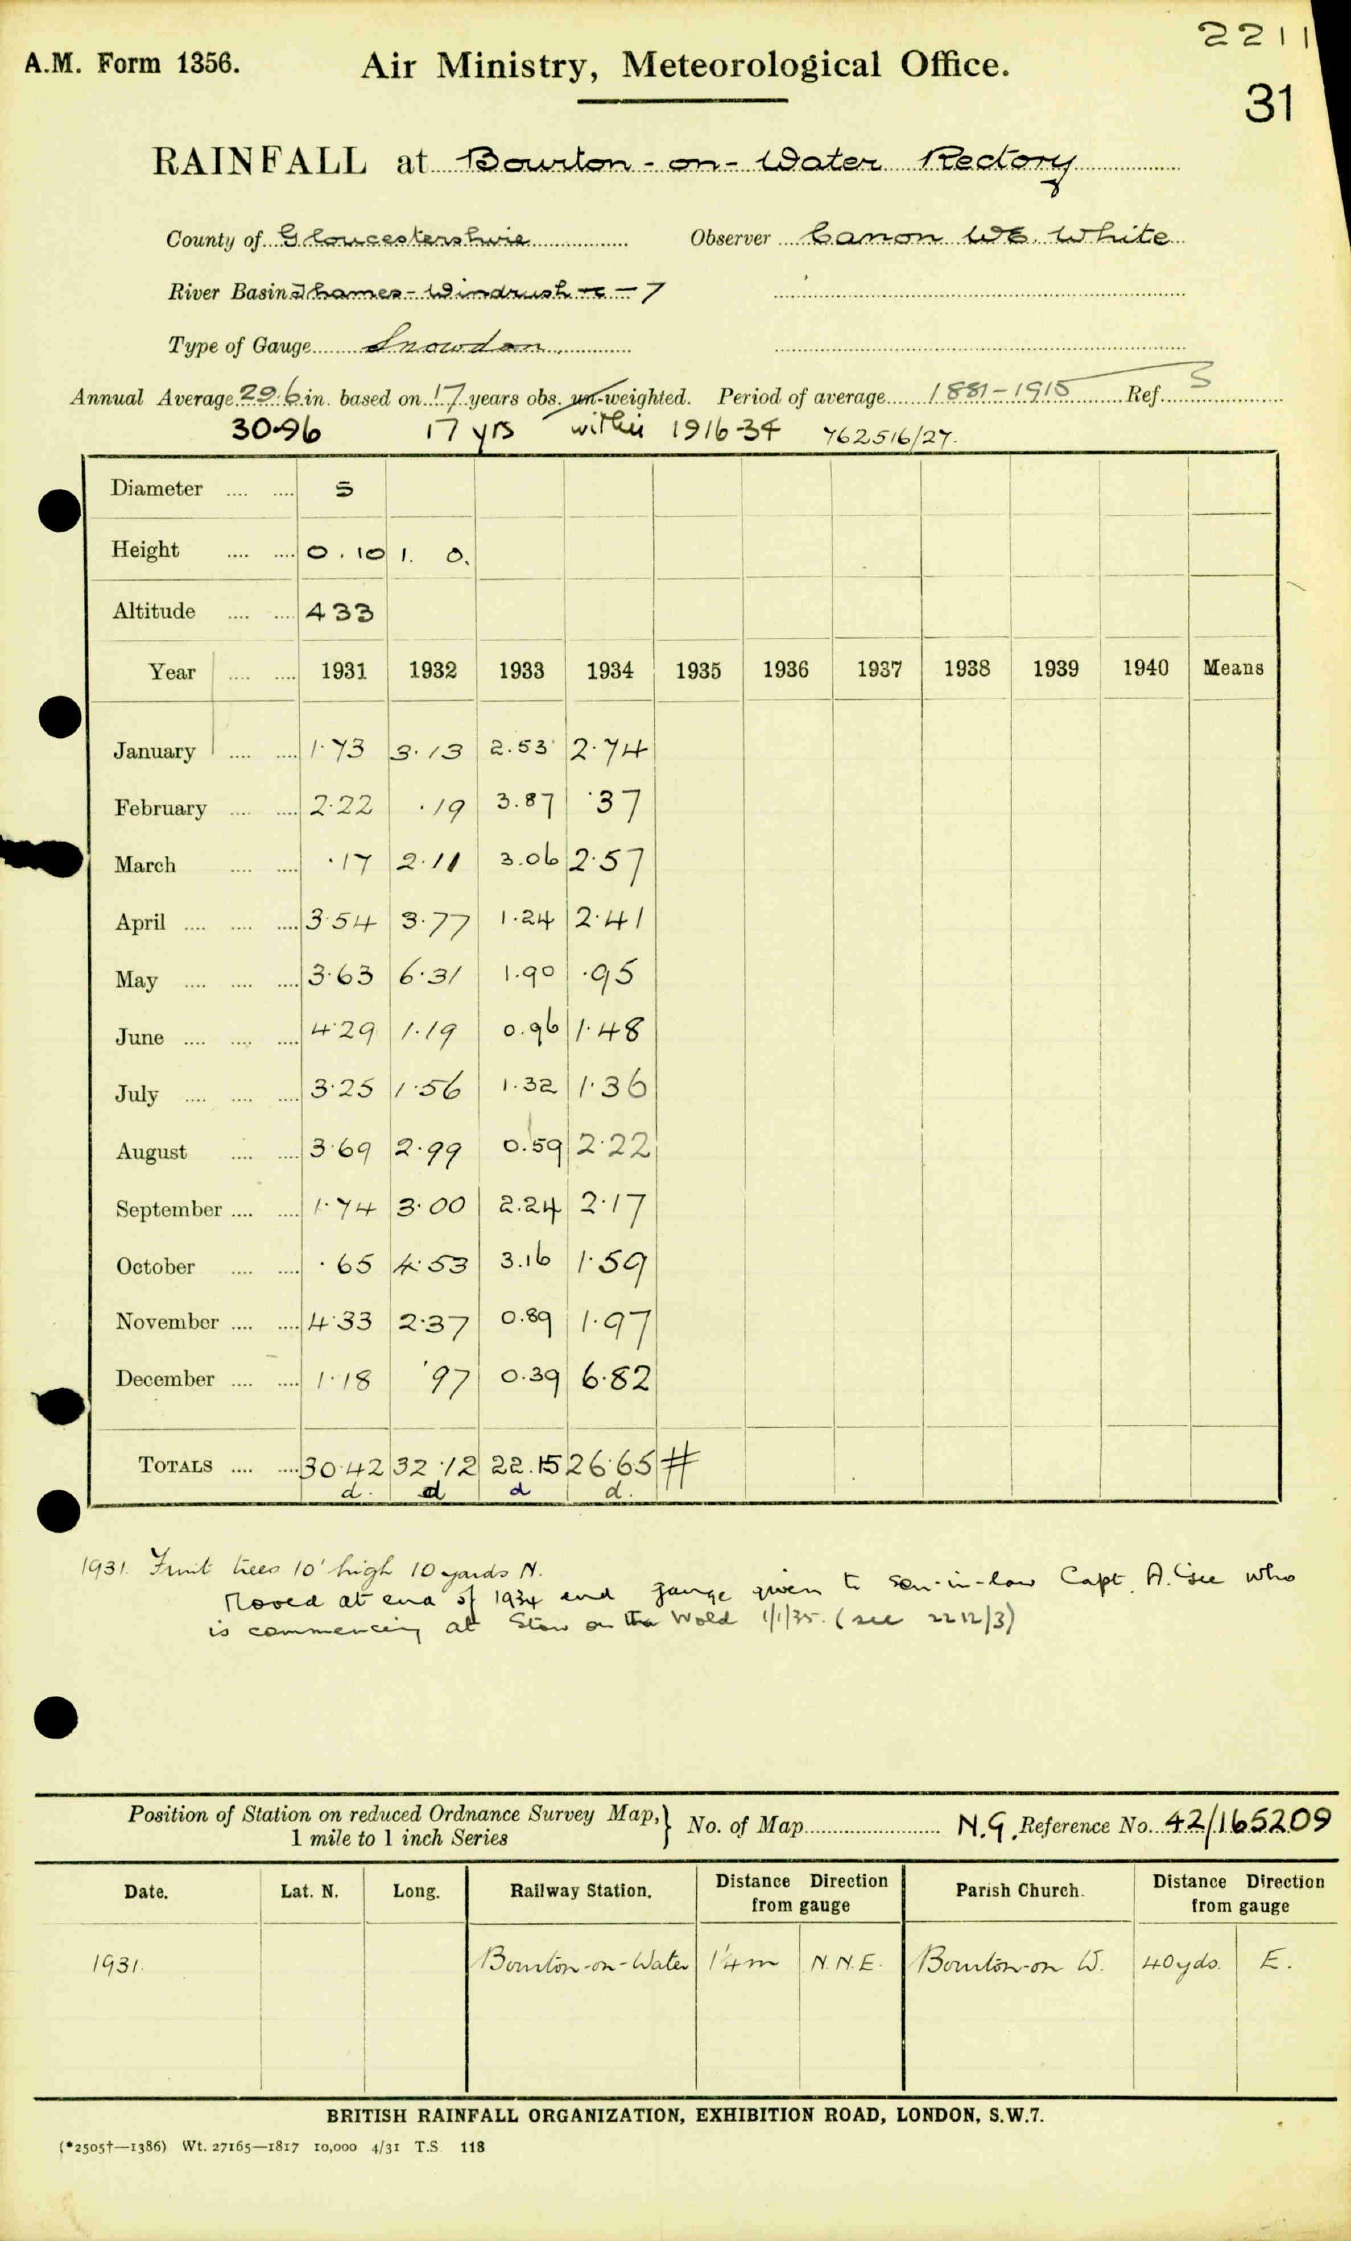 2211
A.M. Form 1356.
Air Ministry, Meteorological Office.
31
RAINFALL at Bourton-on-Water Rectory
County of Gloucestershire Observer Canon WE. White
River Basin Thames-Windrush - 7
Type of Gauge Snowdon.
Annual Average 29.6 in. based on 17 years obs. un-weighted. Period of average 1881-1915 Ref. S
30.96 17 yrs within 1916-34 762516/27.
Diameter .... .... 5
Height .... .... 0.10 1. 0.
Altitude .... .... 433
Year .... .... 1931 1932 1933 1934 1935 1936 1937 1938 1939 1940 Means
January .... .... 1.73 3.13 2.53 2.74
February .... .... 2.22 .19 3.87 .37
March .... .... .17 2.11 3.06 2.57
April .... .... .... 3.54 3.77 1.24 2.41
May .... .... .... 3.63 6.31 1.90 .95
June .... .... .... 4.29 1.19 0.96 1.48
July .... .... .... 3.25 1.56 1.32 1.36
August .... .... 3.69 2.99 0.59 2.22
September .... .... 1.74 3.00 2.24 2.17
October .... .... .65 4.53 3.16 1.59
November .... .... 4.33 2.37 0.89 1.97
December .... .... 1.18 .97 0.39 6.82
TOTALS .... .... 30.42 32.12 22.15 26.65 #
d. d d d.
1931. Fruit trees 10' high 10 yards N.
Moved at end of 1934 and gauge given to son-in-law Capt. A. Gee who
is commencing at Stow on the Wold 1/1/35. (see 2212/3)
Position of Station on reduced Ordnance Survey Map, } No. of Map N.G. Reference No. 42/165209
1 mile to 1 inch Series
Date. Lat. N. Long. Railway Station. Distance Direction from gauge Parish Church. Distance Direction from gauge
1931. Bourton-on-Water 1/4 m N.N.E. Bourton-on W. 40 yds. E.
BRITISH RAINFALL ORGANIZATION, EXHIBITION ROAD, LONDON, S.W.7.
(*2505†—1386) Wt. 27165—1817 10,000 4/31 T.S 118